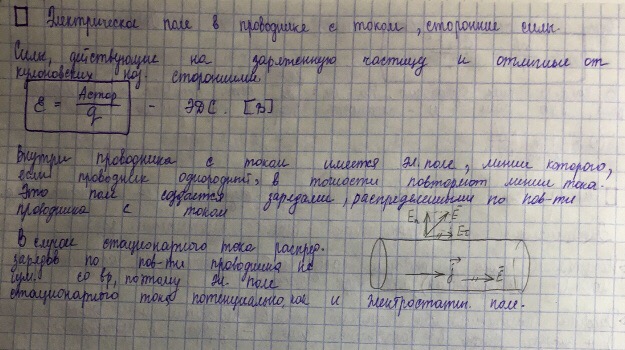 Электрическое поле в проводнике с током, сторонние силы.
Силы, действующие на заряженную частицу и отличные от
кулоновских наз. сторонними.
ℰ = Aстор/q - ЭДС. [В]
Внутри проводника с током имеется эл. поле, линии которого,
если проводник однородный, в точности повторяют линии тока.
Это поле создается зарядами, распределенными по пов-ти
проводника с током
En E Eτ
В случае стационарного тока распред.
зарядов по пов-ти проводника не
j E
со вр, поэтому эл. поле
стационарного тока потенциально, как и электростатич. поле.